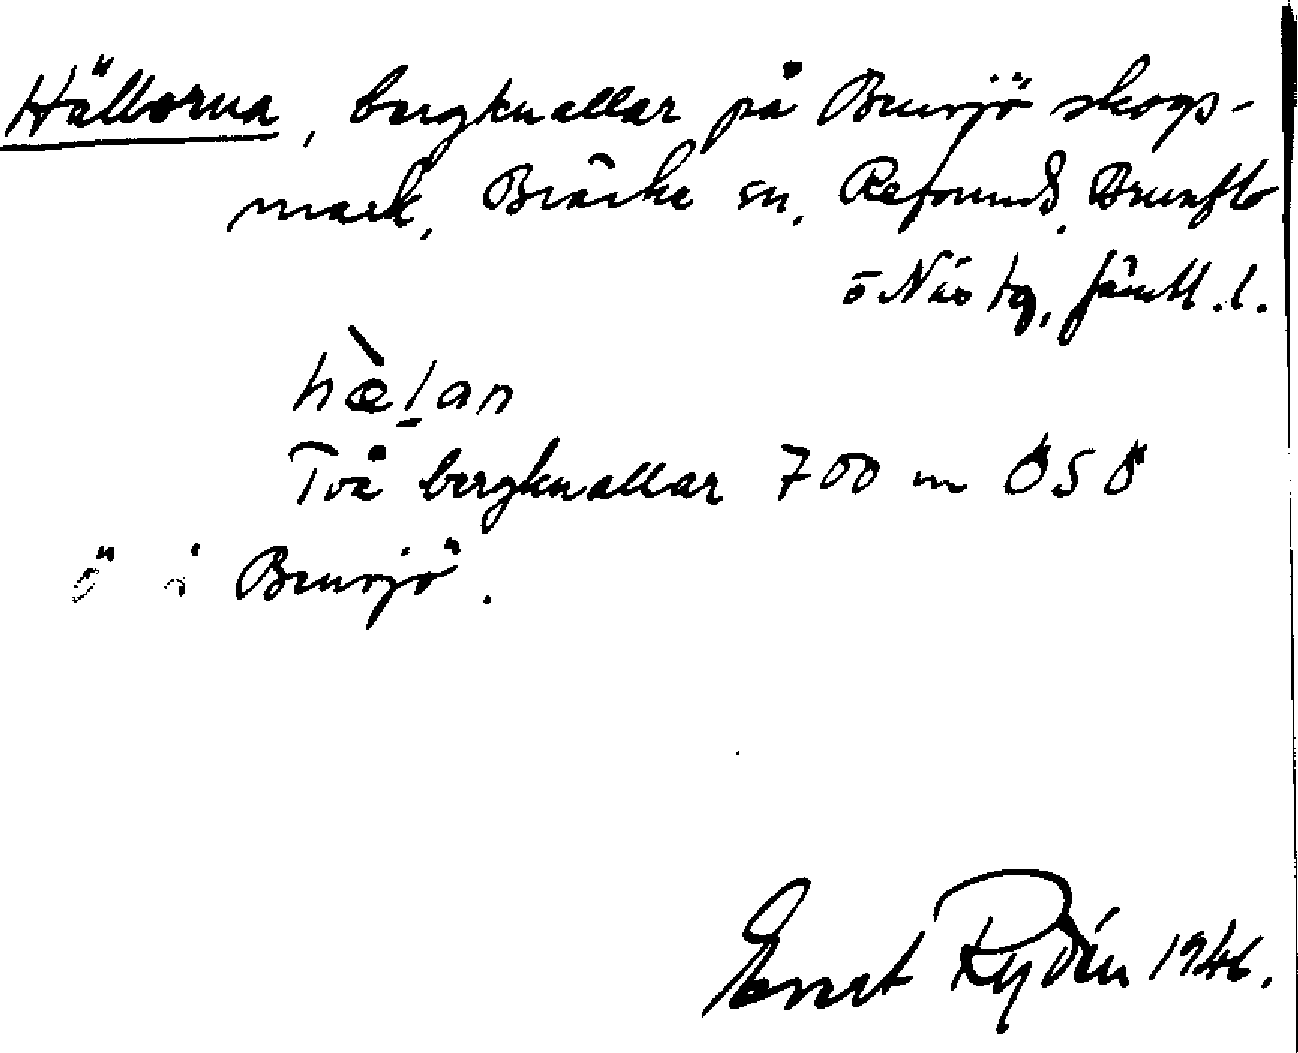 Hällorna, bergknallar på Bensjö skogs-
mark, Bräcke sn, Refsunds, Brunflo
o Näs tg, Jämtl. l.
hæ̀l̠an
Två bergknallar 700 m ÖSÖ
ö i Bensjö.
Ernst Rydén 1946.